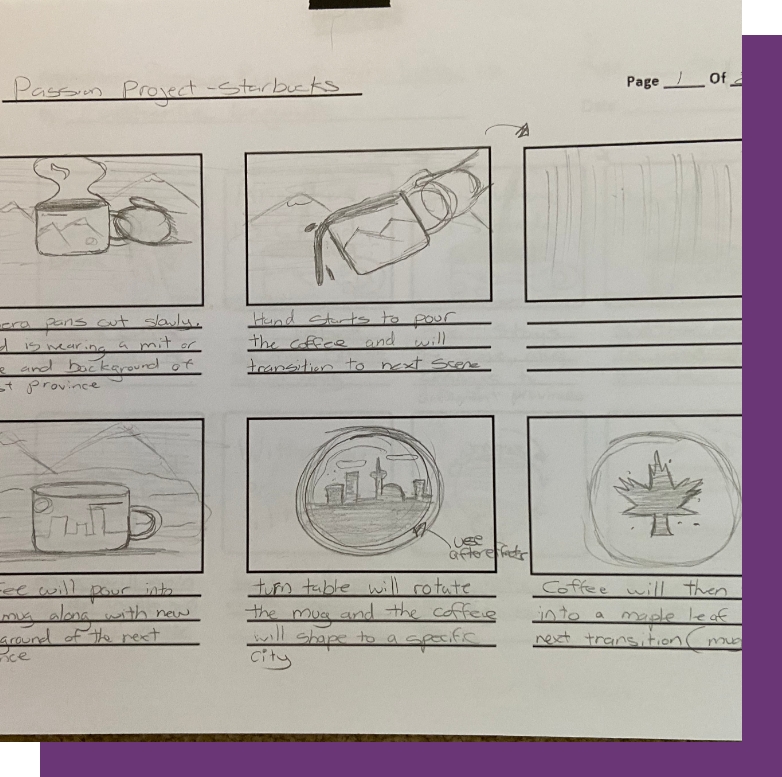 Passion Project - Starbucks
Page 1 Of
era pans out slowly.
d is wearing a mit or
e and background of
st province
Hand starts to pour
the coffee and will
transition to next scene
use
after effects
fee will pour into
mug along with new
ground of the next
nce
turn table will rotate
the mug and the coffeee
will shape to a specific
City
Coffee will then
into a maple leaf
next transition (mug